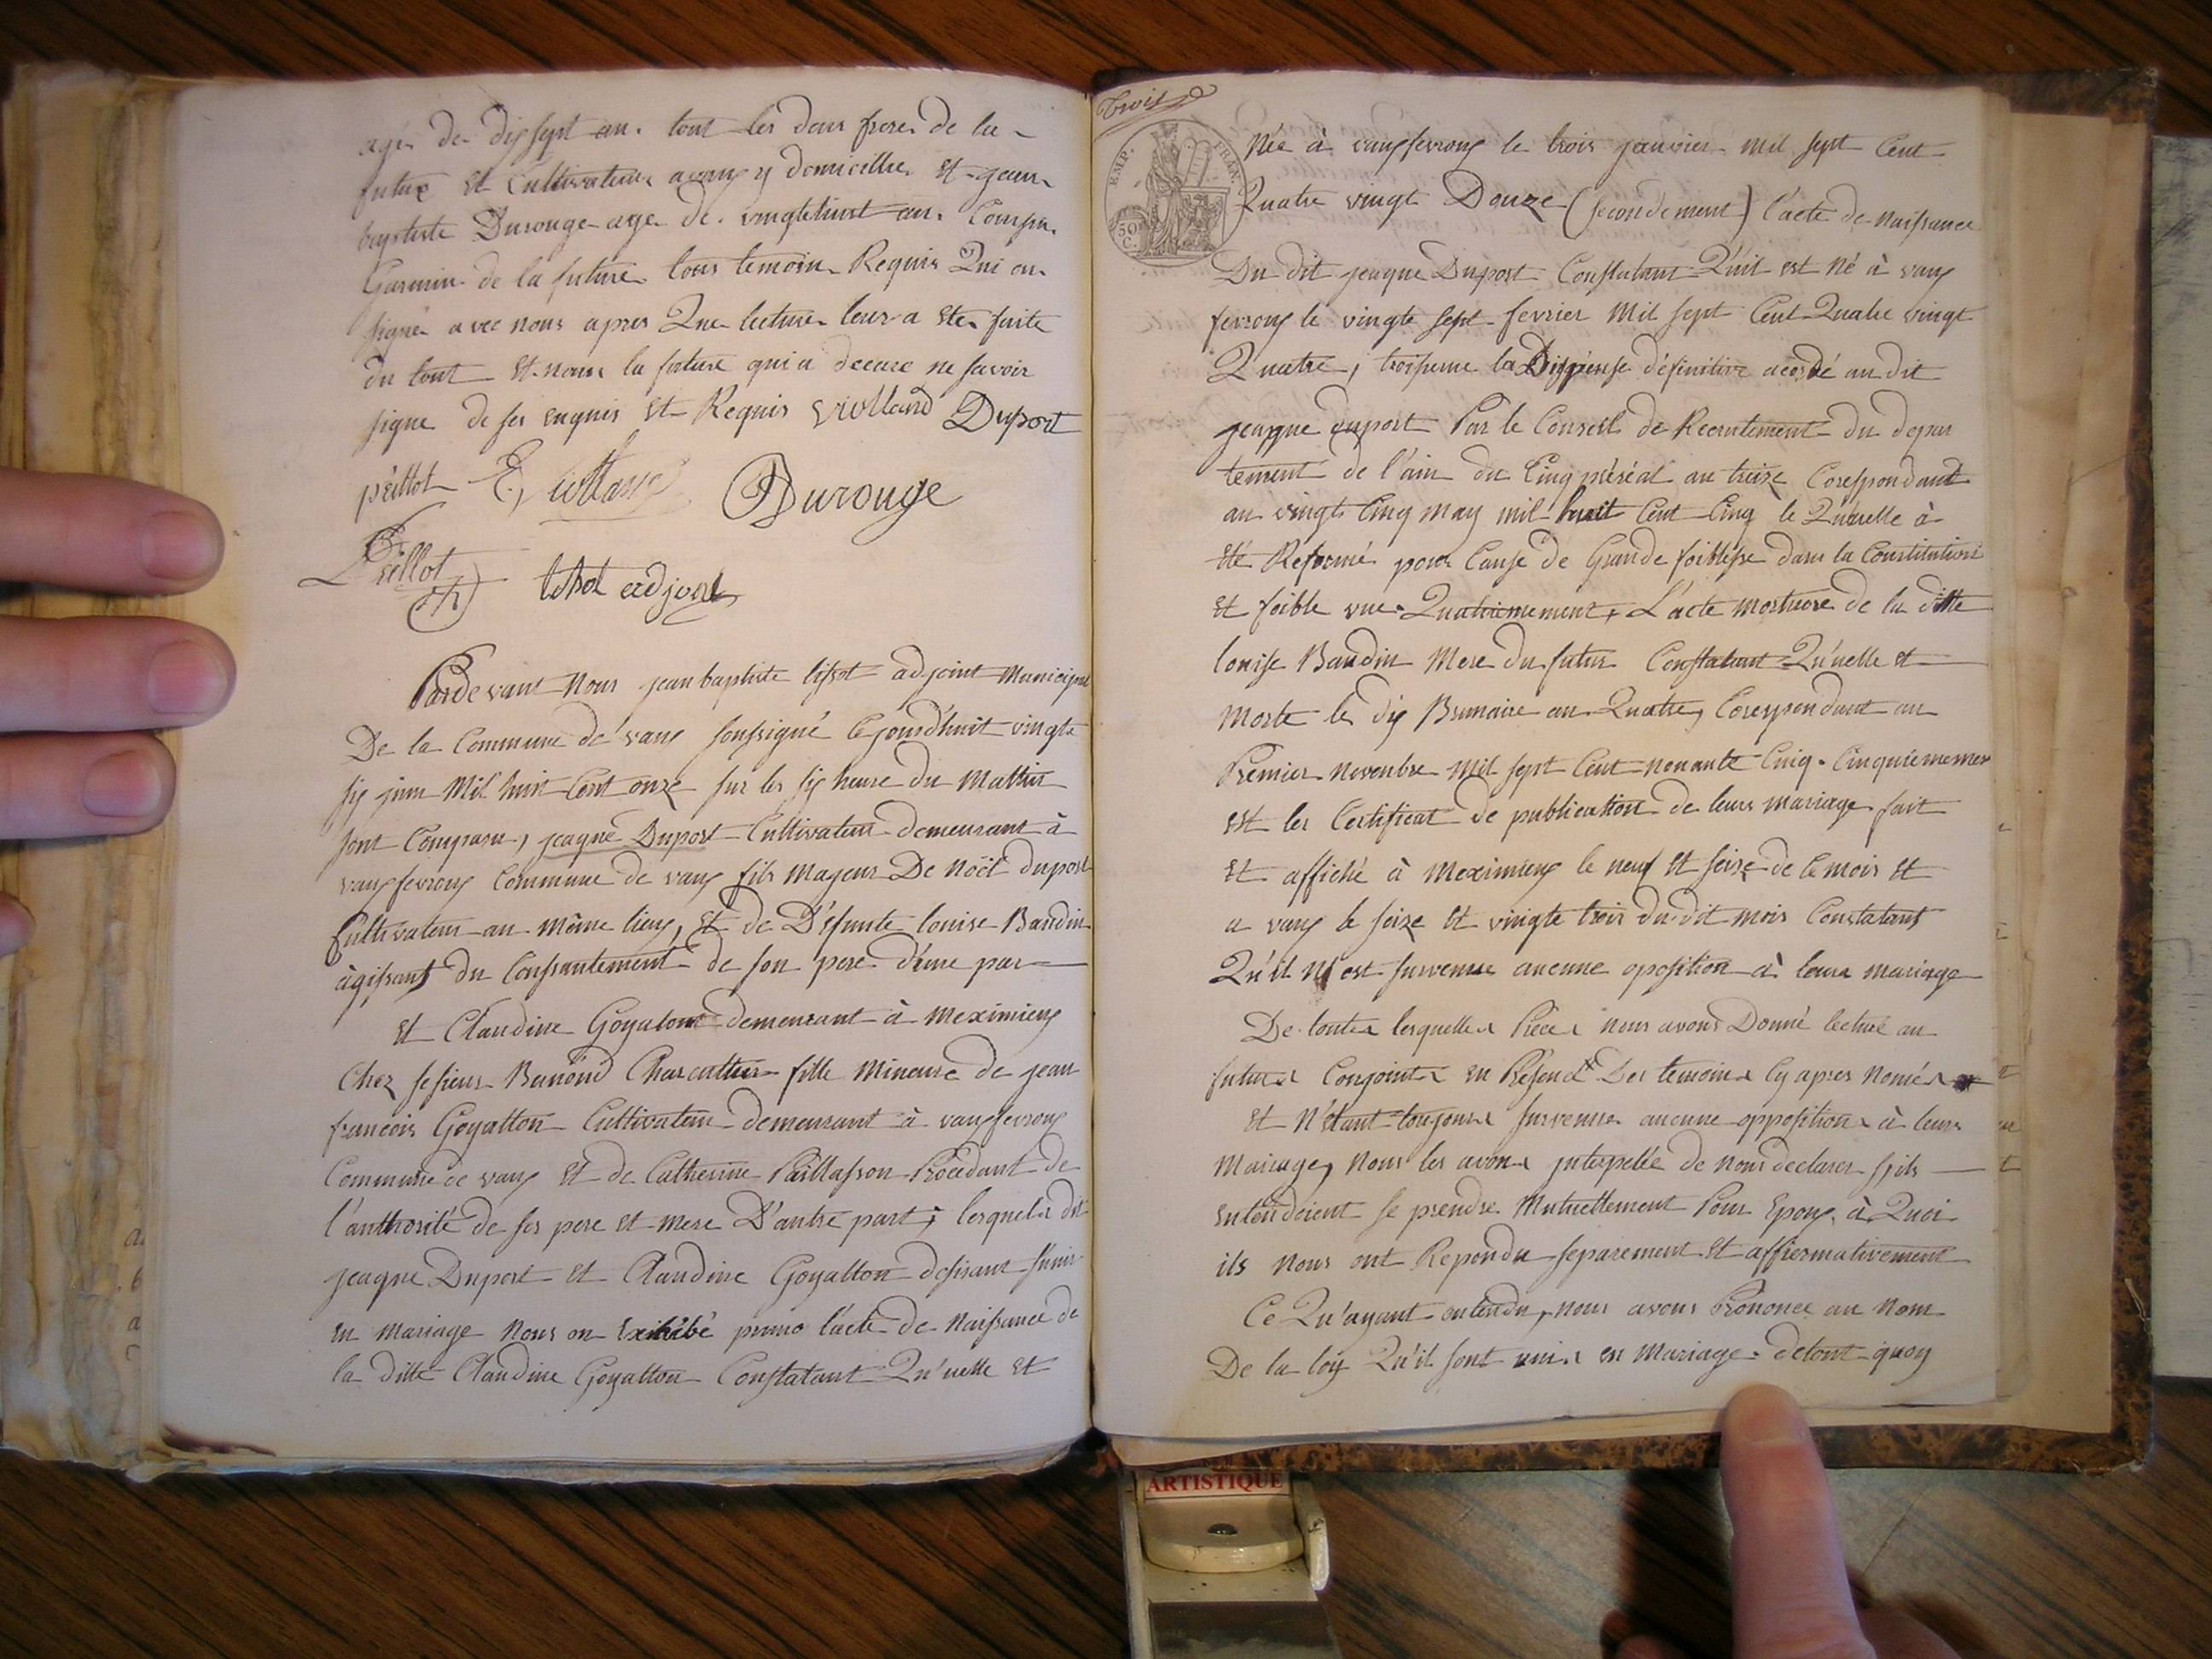 agé de dix sept an. tout les deux freres de la
future et Cultivateur a vaux y domicillie et jean
baptiste Durouge age de vingthuit an. Cousin
Garmin de la future tous temoin Requis Qui on
signé avec nous apres Que lecture leur a eté faite
du tout et nom la future qui a decare ne savoir
signe de ses enquis et Requis Viollard Duport
peillot E. Durouge
Peillot tissot adjoint
Pardevant Nous jean baptiste tissot adjoint Municipal
De la Commune de vaux soussigné Cejourd'huit vingte
six juin Mil huit Cent onze sur les six heure du Mattin
sont Comparu, jeaque Duport Cultivateur demeurant à
vauxfevroux Commune de vaux fils Mageur De Noël duport
Cultivateur au même lieux, et de D'éfunte louise Baudin
àgissant du Conssantement de son pere d'une par
et Claudine Goyaton demeurant à Meximieux
Chez le sieur Charcuttier fille Mineure de jean
francois Goyatton Cultivateur demeurant à vauxfevroux
Commune de vaux et de Catherine Paillasson Procedant de
l'anthorité de ses pere et mere D'autre part; lesquels dit
jeaque Duport et Claudine Goyatton desirant s'unir
en mariage Nous on Exhibé primo l'acte de Naissance de
la ditte Claudine Goyatton Constatant Qu'uelle et
Trois
EMP. FRAN.
50 C.
Née à vauxfevroux le trois janvier mil sept Cent
Quatre vingt Douze (secondement) l'acte de Naissance
Du dit jeaque Duport Constatant Qu'il est Né à vaux
fevroux le vingte sept fevrier Mil sept Cent Quatre vingt
Quatre, troisieme la Dispense définitive acordé au dit
jeaque duport Par le Conseil de Recrutement du depar
tement de l'ain du Cinq préréal an treize Corespondant
au vingt Cinq may mil huit Cent Cinq le Qu'uelle à
eté Reformé pour Cause de Grande foiblesse dans la Constitution
et foible vue. Quatriemement, L'acte mortuore de la ditte
louise Baudin Mere du futur Constatant Qu'uelle et
Morte le dix Brumaire an Quatre, Corespondant au
Premier novenbre Mil sept Cent nonante Cinq. Cinquiemement
est les Certificat de publication de leurs mariage fait
et affiché à Meximieux le neuf et seize de Ce mois et
a vaux le seize et vingte trois du dit mois Constatant
Qu'il N'est survenue aucune oposition à leurs mariage
De toutes lesquelles Piece Nous avons Donné lecture au
futures Conjoints en Présence Des temoins Cy apres Només
et N'étant toujours survenue aucune oppositions à leurs
Mariage, Nous les avons jnterpellée de Nous declarer s'ils
entendoient se prendre Mutuellement Pour Epoux, à Quoi
ils Nous ont Repondu separement et affiermativement
Ce Qu'ayant entendu, nous avons Prononcé au Nom
De la loy Qu'il sont unis en Mariage. de tout quoy
ARTISTIQUE